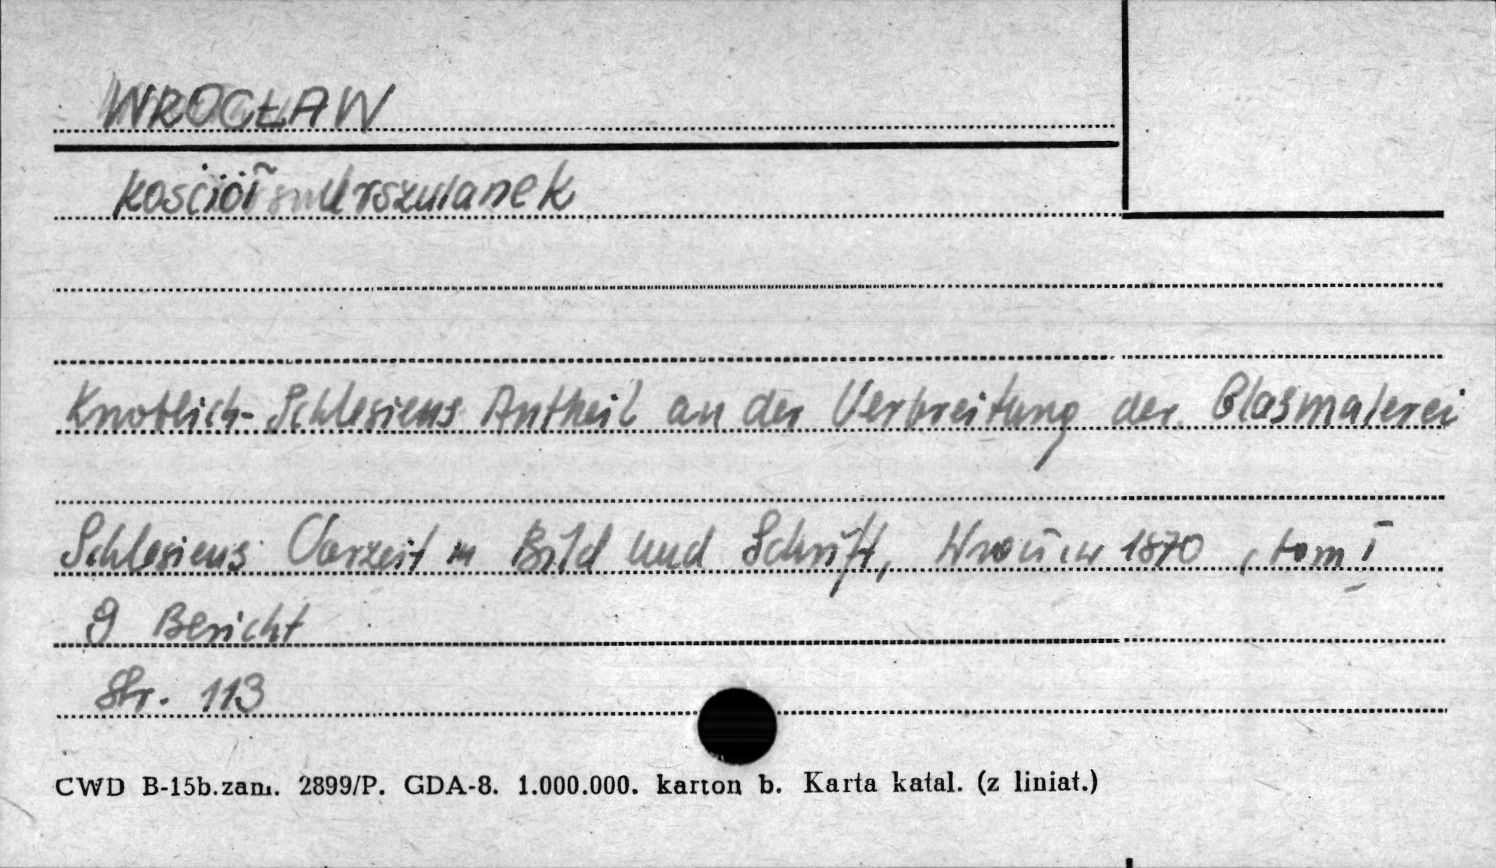 WROCŁAW
kościół Urszulanek
Knoblich - Schlesiens Antheil an der Verbreitung der Glasmalerei
Schlesiens Vorzeit in Bild und Schrift, Wrocław 1870, tom I
9 Bericht
Str. 113
CWD B-15b.zam. 2899/P. GDA-8. 1.000.000. karton b. Karta katal. (z liniat.)